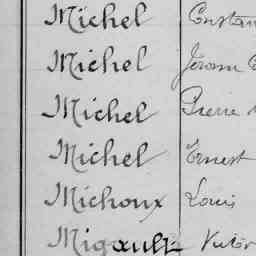 Michel
Michel
Michel Pierre
Michel Ernest
Michoux Louis
Migault Victor